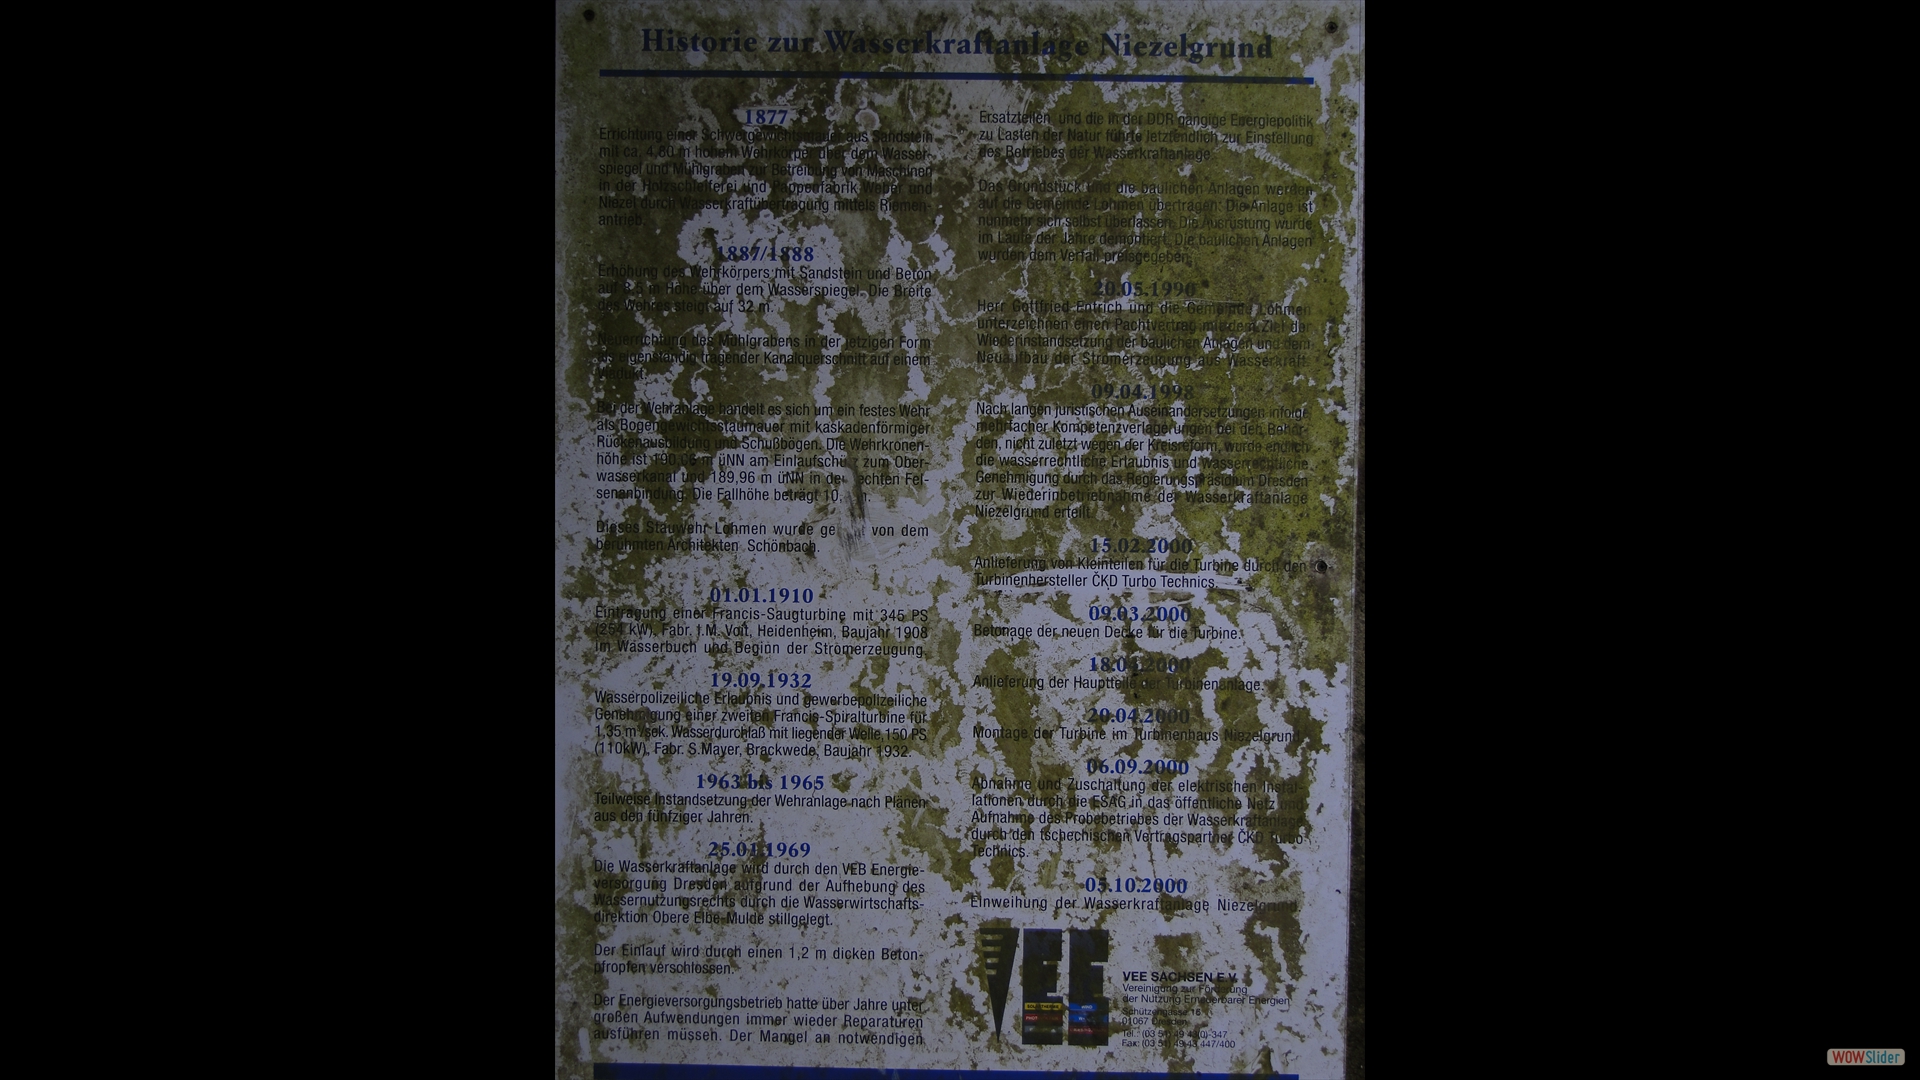 Historie zur Wasserkraftanlage Niezelgrund
1877
Errichtung einer Schwergewichtsmauer aus Sandstein
mit ca. 4,80 m hohem Wehrkörper über dem Wasser-
spiegel und Mühlgraben zur Betreibung von Maschinen
in der Holzschleiferei und Pappenfabrik Weber und
Niezel durch Wasserkraftübertragung mittels Riemen-
antrieb.
1887/1888
Erhöhung des Wehrkörpers mit Sandstein und Beton
auf 8,5 m Höhe über dem Wasserspiegel. Die Breite
des Wehres steigt auf 32 m.
Neuerrichtung des Mühlgrabens in der jetzigen Form
als eigenständig tragender Kanalquerschnitt auf einem
Viadukt.
Bei der Wehranlage handelt es sich um ein festes Wehr
als Bogengewichtsstaumauer mit kaskadenförmiger
Rückenausbildung und Schußbögen. Die Wehrkronen-
höhe ist 190,06 m üNN am Einlaufschütz zum Ober-
wasserkanal und 189,96 m üNN in der rechten Fel-
senanbindung. Die Fallhöhe beträgt 10,
Dieses Stauwehr Lohmen wurde von dem
berühmten Architekten Schönbach.
01.01.1910
Eintragung einer Francis-Saugturbine mit 345 PS
(254 kW), Fabr. J.M. Voit, Heidenheim, Baujahr 1908
im Wasserbuch und Beginn der Stromerzeugung.
19.09.1932
Wasserpolizeiliche Erlaubnis und gewerbepolizeiliche
Genehmigung einer zweiten Francis-Spiralturbine für
1,35 m³/sek. Wasserdurchlaß mit liegender Welle,150 PS
(110kW), Fabr. S.Mayer, Brackwede, Baujahr 1932.
1963 bis 1965
Teilweise Instandsetzung der Wehranlage nach Plänen
aus den fünfziger Jahren.
25.01.1969
Die Wasserkraftanlage wird durch den VEB Energie-
versorgung Dresden aufgrund der Aufhebung des
Wassernutzungsrechts durch die Wasserwirtschafts-
direktion Obere Elbe-Mulde stillgelegt.
Der Einlauf wird durch einen 1,2 m dicken Beton-
pfropfen verschlossen.
Der Energieversorgungsbetrieb hatte über Jahre unter
großen Aufwendungen immer wieder Reparaturen
ausführen müssen. Der Mangel an notwendigen
Ersatzteilen und die in der DDR gängige Energiepolitik
zu Lasten der Natur führte letztendlich zur Einstellung
des Betriebes der Wasserkraftanlage.
Das Grundstück und die baulichen Anlagen werden
auf die Gemeinde Lohmen übertragen. Die Anlage ist
nunmehr sich selbst überlassen. Die Ausrüstung wurde
im Laufe der Jahre demontiert. Die baulichen Anlagen
wurden dem Verfall preisgegeben.
20.05.1990
Herr Gottfried Entrich und die Gemeinde Lohmen
unterzeichnen einen Pachtvertrag mit dem Ziel der
Wiederinstandsetzung der baulichen Anlagen und dem
Neuaufbau der Stromerzeugung aus Wasserkraft.
09.04.1998
Nach langen juristischen Auseinandersetzungen infolge
mehrfacher Kompetenzverlagerungen bei den Behör-
den, nicht zuletzt wegen der Kreisreform, wurde endlich
die wasserrechtliche Erlaubnis und wasserrechtliche
Genehmigung durch das Regierungspräsidium Dresden
zur Wiederinbetriebnahme der Wasserkraftanlage
Niezelgrund erteilt.
15.02.2000
Anlieferung von Kleinteilen für die Turbine durch den
Turbinenhersteller ČKD Turbo Technics.
09.03.2000
Betonage der neuen Decke für die Turbine.
18.04.2000
Anlieferung der Hauptteile der Turbinenanlage.
20.04.2000
Montage der Turbine im Turbinenhaus Niezelgrund
06.09.2000
Abnahme und Zuschaltung der elektrischen Instal-
lationen durch die ESAG in das öffentliche Netz und
Aufnahme des Probebetriebes der Wasserkraftanlage
durch den tschechischen Vertragspartner ČKD Turbo
Technics.
05.10.2000
Einweihung der Wasserkraftanlage Niezelgrund
VEE
VEE SACHSEN E.V.
Vereinigung zur Förderung
der Nutzung Erneuerbarer Energien
Schützengasse 16
01067 Dresden
Tel.: (03 51) 49 43(0)-347
Fax: (03 51) 49 43 447/400
WOWSlider